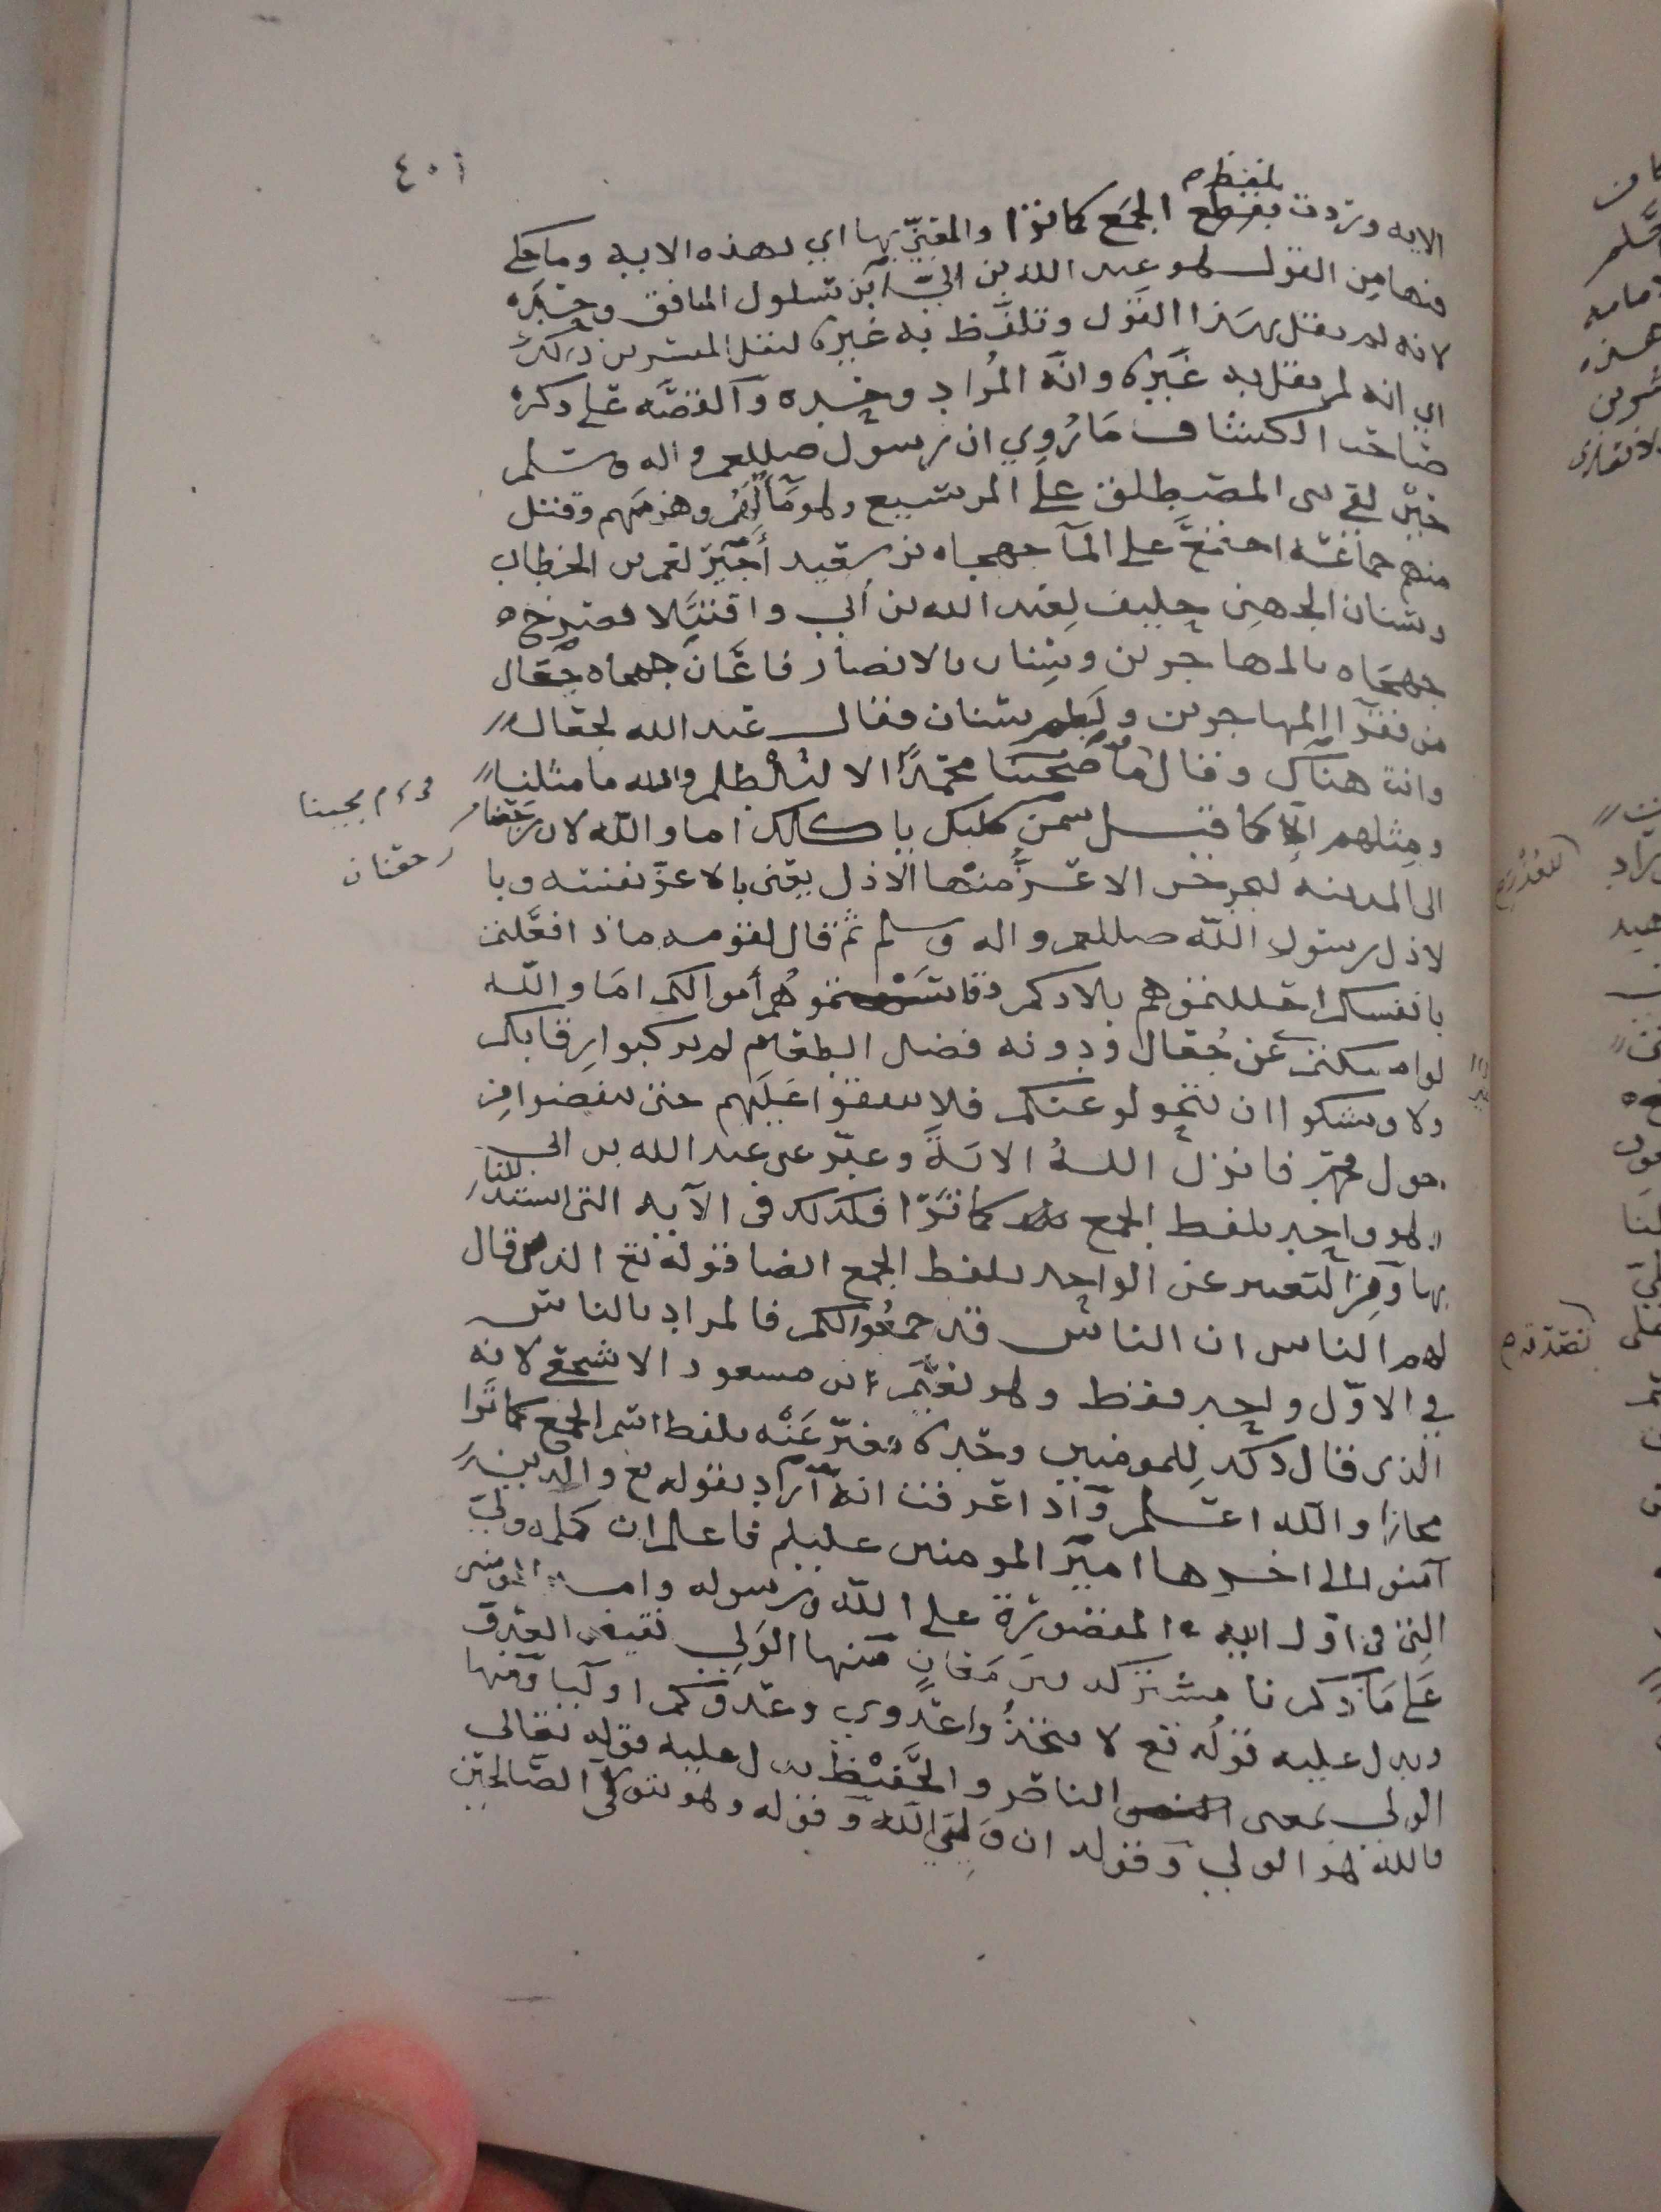 ٤٠١
بلفظ م
الايه وردت بلفظ الجمع كما نرى والمعني بها اي بهذه الايه وما حكي
فيها من القول هو عبد الله بن ابي ابن سلول المنافق وحده
لانه لم يقل بهذا القول وتلفظ به غيره لنقل المفسرين ذلك
اي انه لم يقل به غيره وانه المراد وحده والقصه على ذكره
صاحب الكشاف ما روي ان رسول صللعم واله وسلم
حين لقي بني المصطلق على المريسيع وهو مآلهم وهزمهم وقتل
منهم جماعة اجتمع على المآ جهجاه بن سعيد أجير لعمر بن الخطاب
وسنان الجهني حليف لعبد الله بن أبي واقتتلا فصرخ
جهجاه بالمهاجرين وسنان بالانصار فاعان جهجاه جعال
من فقرآ المهاجرين ولطم سنان فقال عبد الله لجعال
وانت هناك وقال ما صحبنا محمدًا الا لنلطم والله ما مثلنا
ومثلهم الا كما قيل سمن كلبك ياكلك اما والله لان رجعنا
الى المدينه ليخرجن الاعز منها الاذل يعني بالاعز نفسه وبا
لاذل رسول الله صللعم واله وسلم ثم قال لقومه ماذا فعلتم
بانفسكم احللتموهم بلادكم وقاسمتموهم أموالكم اما والله
لو امسكتم عن جعال وذويه فضل الطعام لم يركبوا رقابكم
ولاوشكوا ان يتحولوا عنكم فلا تنفقوا عليهم حتى ينفضوا من
حول محمد فانزل الله الاية وعبر عن عبد الله بن ابي
وهو واحد بلفظ الجمع كما نرى فكذلك في الآيه التي استدللنا
بها ومن التعبير عن الواحد بلفظ الجمع ايضا قوله تع الذين قال
لهم الناس ان الناس قد جمعوا لكم فالمراد بالناس
في الاول واحد فقط وهو نعيم ابن مسعود الاشجعي لانه
الذي قال ذلك للمومنين وحده فعبر عنه بلفظ اسم الجمع كما نرى
مجازا والله اعلم وآذا عرفت انه آراد بقوله تع والذين
آمنوا الى اخرها امير المومنين عليلم فاعلم ان كلمه ولي
التي في اول الايه المقصورة على الله ورسوله وامير المومنين
على ما ذكرنا مشتركه بين معان منها الولي نقيض العدو
ويدل عليه قوله تع لا تتخذوا عدوي وعدوكم اوليا ومنها
الولي بمعنى الناصر والحفيظ يدل عليه قوله تعالى
فالله هو الولي وقوله ان وليي الله وقوله وهو يتولى الصالحين